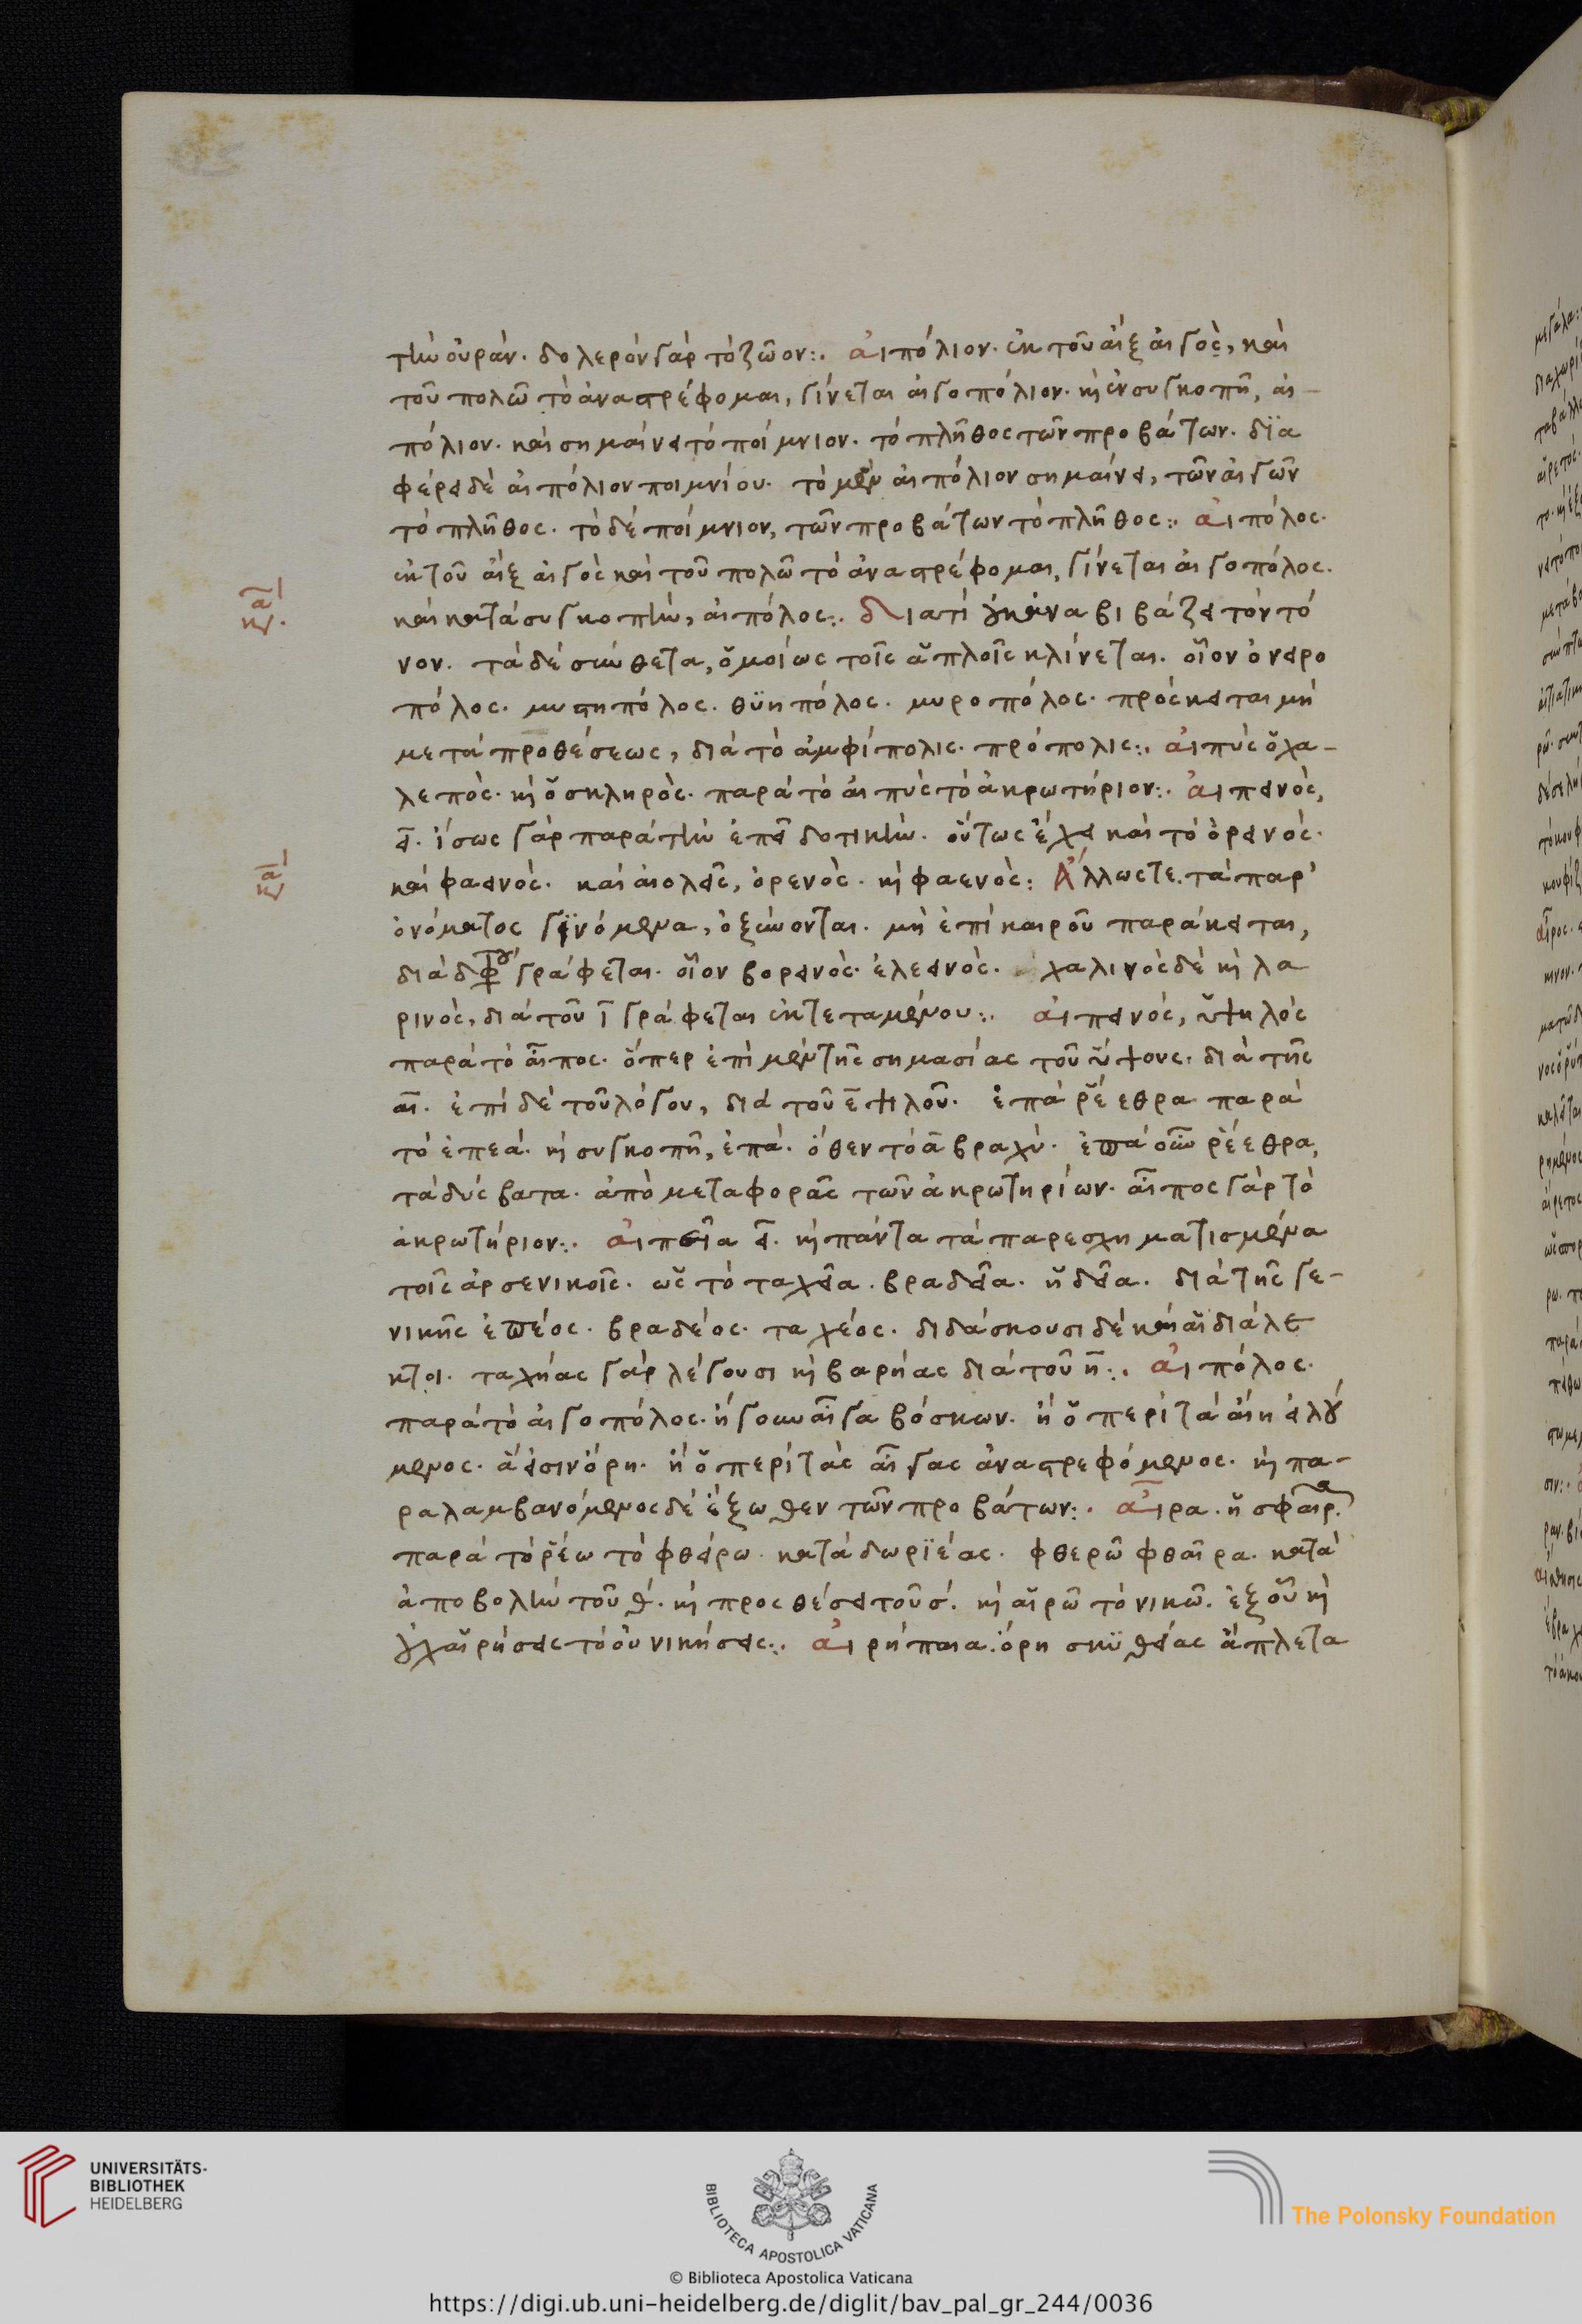 τὴν οὐράν· δολερὸν γὰρ τὸ ζῶον:· αἰπόλιον· ἐκ τοῦ αἲξ αἰγὸς, καὶ
τοῦ πολῶ τὸ ἀναστρέφομαι, γίνεται αἰγοπόλιον· κὴ ἐν συγκοπῇ, αἰ-
πόλιον· καὶ σημαίνει τὸ ποίμνιον· τὸ πλῆθος τῶν προβάτων· δϊα
φέρει δὲ αἰπόλιον ποιμνίου· τὸ μὲν αἰπόλιον σημαίνει, τῶν αἰγῶν
τὸ πλῆθος· τὸ δὲ ποίμνιον, τῶν προβάτων τὸ πλῆθος:· αἰπόλος·
ἐκ τοῦ αἲξ αἰγὸς καὶ τοῦ πολῶ τὸ ἀναστρέφομαι, γίνεται αἰγοπόλος.
καὶ κατὰ συγκοπὴν, αἰπόλος:· διατί οὐκ ἀναβιβάζει τὸν τό
νον· τὰ δὲ σύνθετα, ὁμοίως τοῖς ἁπλοῖς κλίνεται· οἷον ὀνειρο
πόλος· μυστηπόλος· θϋηπόλος· μυροπόλος· πρόσκειται μὴ
μετὰ προθέσεως, διὰ τὸ ἀμφίπολις· πρόπολις:· αἰπὺς ὁ χα-
λεπὸς· κὴ ὁ σκληρὸς· παρὰ τὸ αἰπὺς τὸ ἀκρωτήριον:· αἰπεινὸς,
ει· ἴσως γὰρ παρὰ τὴν ἐπει δοτικήν· οὕτως ἔχει καὶ τὸ ὀρεινὸς·
καὶ φαεινὸς· καὶ αἰολεῖς, ὀρενὸς· κὴ φαενὸς: Ἄλλωστε· τὰ παρ'
ὀνόματος γινόμενα, ὀξύνονται· μὴ ἐπὶ καιροῦ παράκειται,
διὰ διφθόγγου γράφεται· οἷον βορεινὸς· ἐλεεινὸς· χαλινὸς δὲ κὴ λα
ρινὸς, διὰ τοῦ ι γράφεται ἐκτεταμένου:· αἰπεινός, ὑψηλός
παρὰ τὸ αἶπος· ὅπερ ἐπὶ μὲν τῆς σημασίας τοῦ ὕψους· διὰ τῆς
αι· ἐπὶ δὲ τοῦ λόγου, διὰ τοῦ ε ψιλοῦ· ἐπὰ ῥέεθρα παρὰ
τὸ ἐπεά· κὴ συγκοπῇ, ἐπά· ὅθεν τὸ α βραχύ· ἐπὰ οὖν ῥέεθρα,
τὰ δύσβατα· ἀπὸ μεταφορᾶς τῶν ἀκρωτηρίων· αἶπος γὰρ τὸ
ἀκρωτήριον:· αἰπεῖα ει· κὴ πάντα τὰ παρεσχηματισμένα
τοῖς ἀρσενικοῖς· ὡς τὸ ταχεῖα· βραδεῖα· ἡδεῖα· διὰ τῆς γε-
νικῆς ἐπέος· βραδέος· ταχέος· διδάσκουσι δὲ καὶ αἱ διάλε
κτοι· ταχήας γὰρ λέγουσι κὴ βαρήας διὰ τοῦ η:· αἰπόλος·
παρὰ τὸ αἰγοπόλος· ἤγουν αἶγα βόσκων· ἢ ὁ περὶ τὰ αἴπη εἰλού
μενος· ἅ εἰσιν ὄρη· ἢ ὁ περὶ τὰς αἶγας ἀναστρεφόμενος· κὴ πα-
ραλαμβανόμενος δὲ ἔξωθεν τῶν προβάτων:· αἶρα· ἡ σφαῖρα
παρὰ τὸ ῥέω τὸ φθείρω· κατὰ δωρϊέας· φθερῶ φθαῖρα· κατὰ
ἀποβολὴν τοῦ θ· κὴ προςθέσει τοῦ σ· κὴ αἱρῶ τὸ νικῶ· ἐξ οὗ κὴ
οὐχ αἱρήσεις τὸ οὐ νικήσεις:· αἰρήπαια· ὄρη σκϋθείας ἄπλετα
UNIVERSITÄTS-
BIBLIOTHEK
HEIDELBERG
BIBLIOTECA APOSTOLICA VATICANA
The Polonsky Foundation
© Biblioteca Apostolica Vaticana
https://digi.ub.uni-heidelberg.de/diglit/bav_pal_gr_244/0036